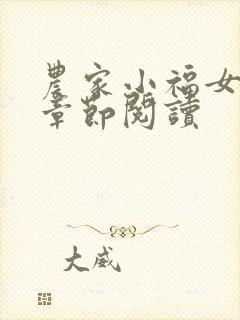 農家小福女
章節閱讀
大威